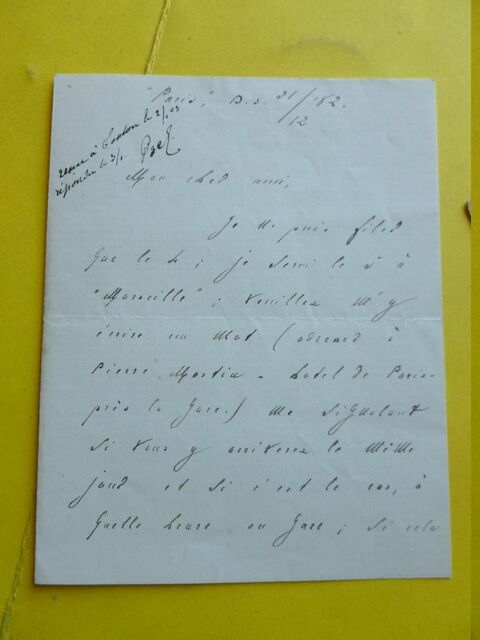 "Paris", D.S. 31/12 /82.
reçue à Toulon le 2/1 83
répondu le 3/1
Mon cher ami,
Je ne puis filer
que le 4 ; je serai le 5 à
"Marseille" ; veuillez m'y
écrire un mot (adressé à
Pierre Martin - hotel de Paris -
près la gare.) me signalant
si vous y arriverez le même
jour et si c'est le cas, à
quelle heure en gare ; si cela